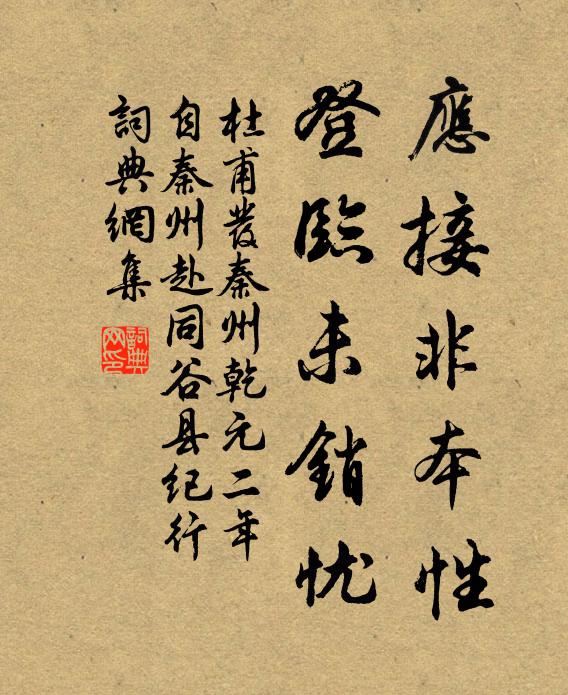 應接非本性
登臨未銷忧
杜甫發秦州乾元二年
自秦州赴同谷县纪行
詞典網集
詞典网印